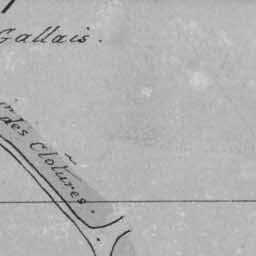 Gallais.
des Clotures.